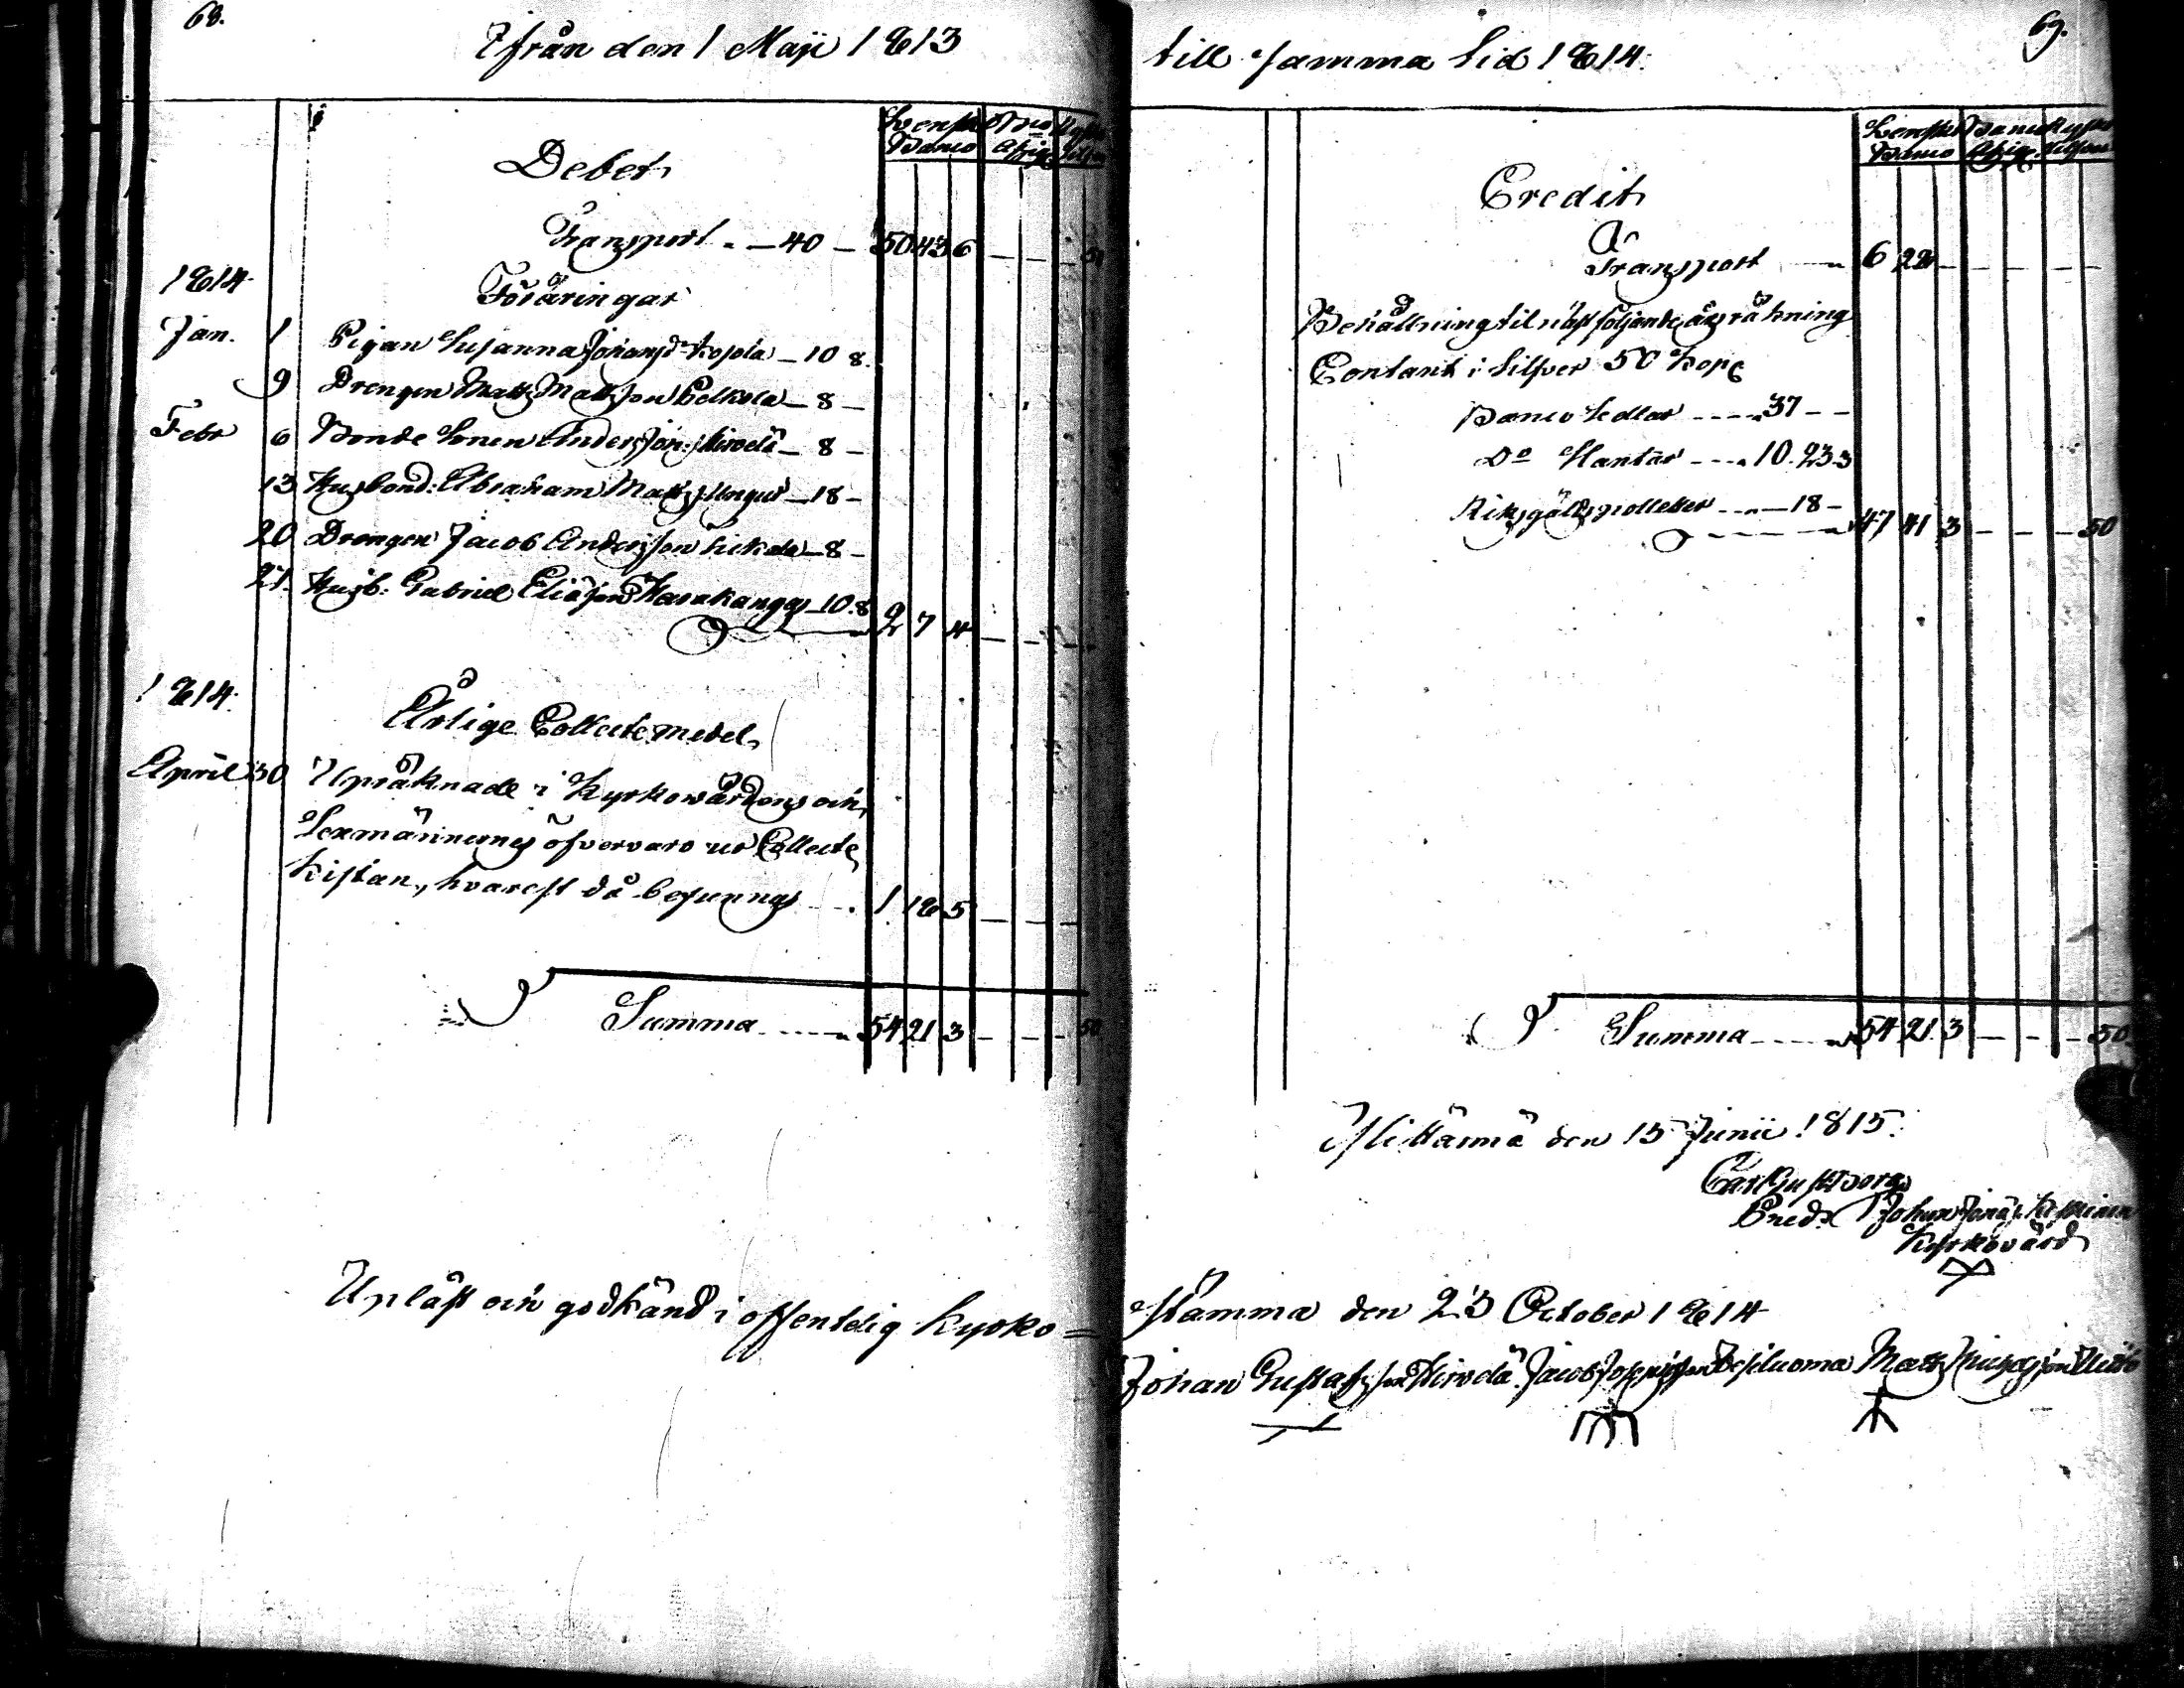 68.
Ifrån den 1 Maji 1813
Svenska Dito Ryskt
Banco Afsige Silfver
Debet
Transport - 40 - 50 43 6 - - - 50
1814
Föräringar
Jan. 1 Pigan Susanna Johansd. Kopola - 10 8.
9 Drengen Matts Mattsson Pelkola - 8 -
Febr 6 Bonde Sonen Anders Joh: Hirvelä - 8 -
13 Husbond: Abraham Matts: Ungur - 18 -
20 Drengen Jacob Andersson - 8 -
21. Husb: Gabriel Eliasson Harakangas - 10. 8
2 7 4 - - -
1814.
Årlige Collecte medel
April 30 Upräknade i Kyrkovärdens och
Sexmännernes öfvervaro ur Collecte
Kistan, hvarest då befunnas - - 1 18 5 - - -
Summa - - - - 54 21 3 - - - 50
69.
till samma tid 1814.
Svenska Banco Ryskt
Banco Afsige Silfver
Credit
Transport - - 6 28 - - - - -
Behållning til näst följande års räkning
Contant i Silfver 50 Kop.
Banco Sedlar - - - - 37 - -
Do Slantar - - - 10. 23 3
Riksgälds polletter - - - 18 -
47 41 3 - - - 50
Summa - - - - 54 21 3 - - - 50.
Ylistärmä den 15 Junii 1815.
Carl Gust
Pred. Johan
Kyrkovärd
Upläst och godkänd i offentelig Kyrko =
stämma den 23 October 1814
Johan Gustafsson Hirvelä Jacob Josephsson Vesiluoma Matts